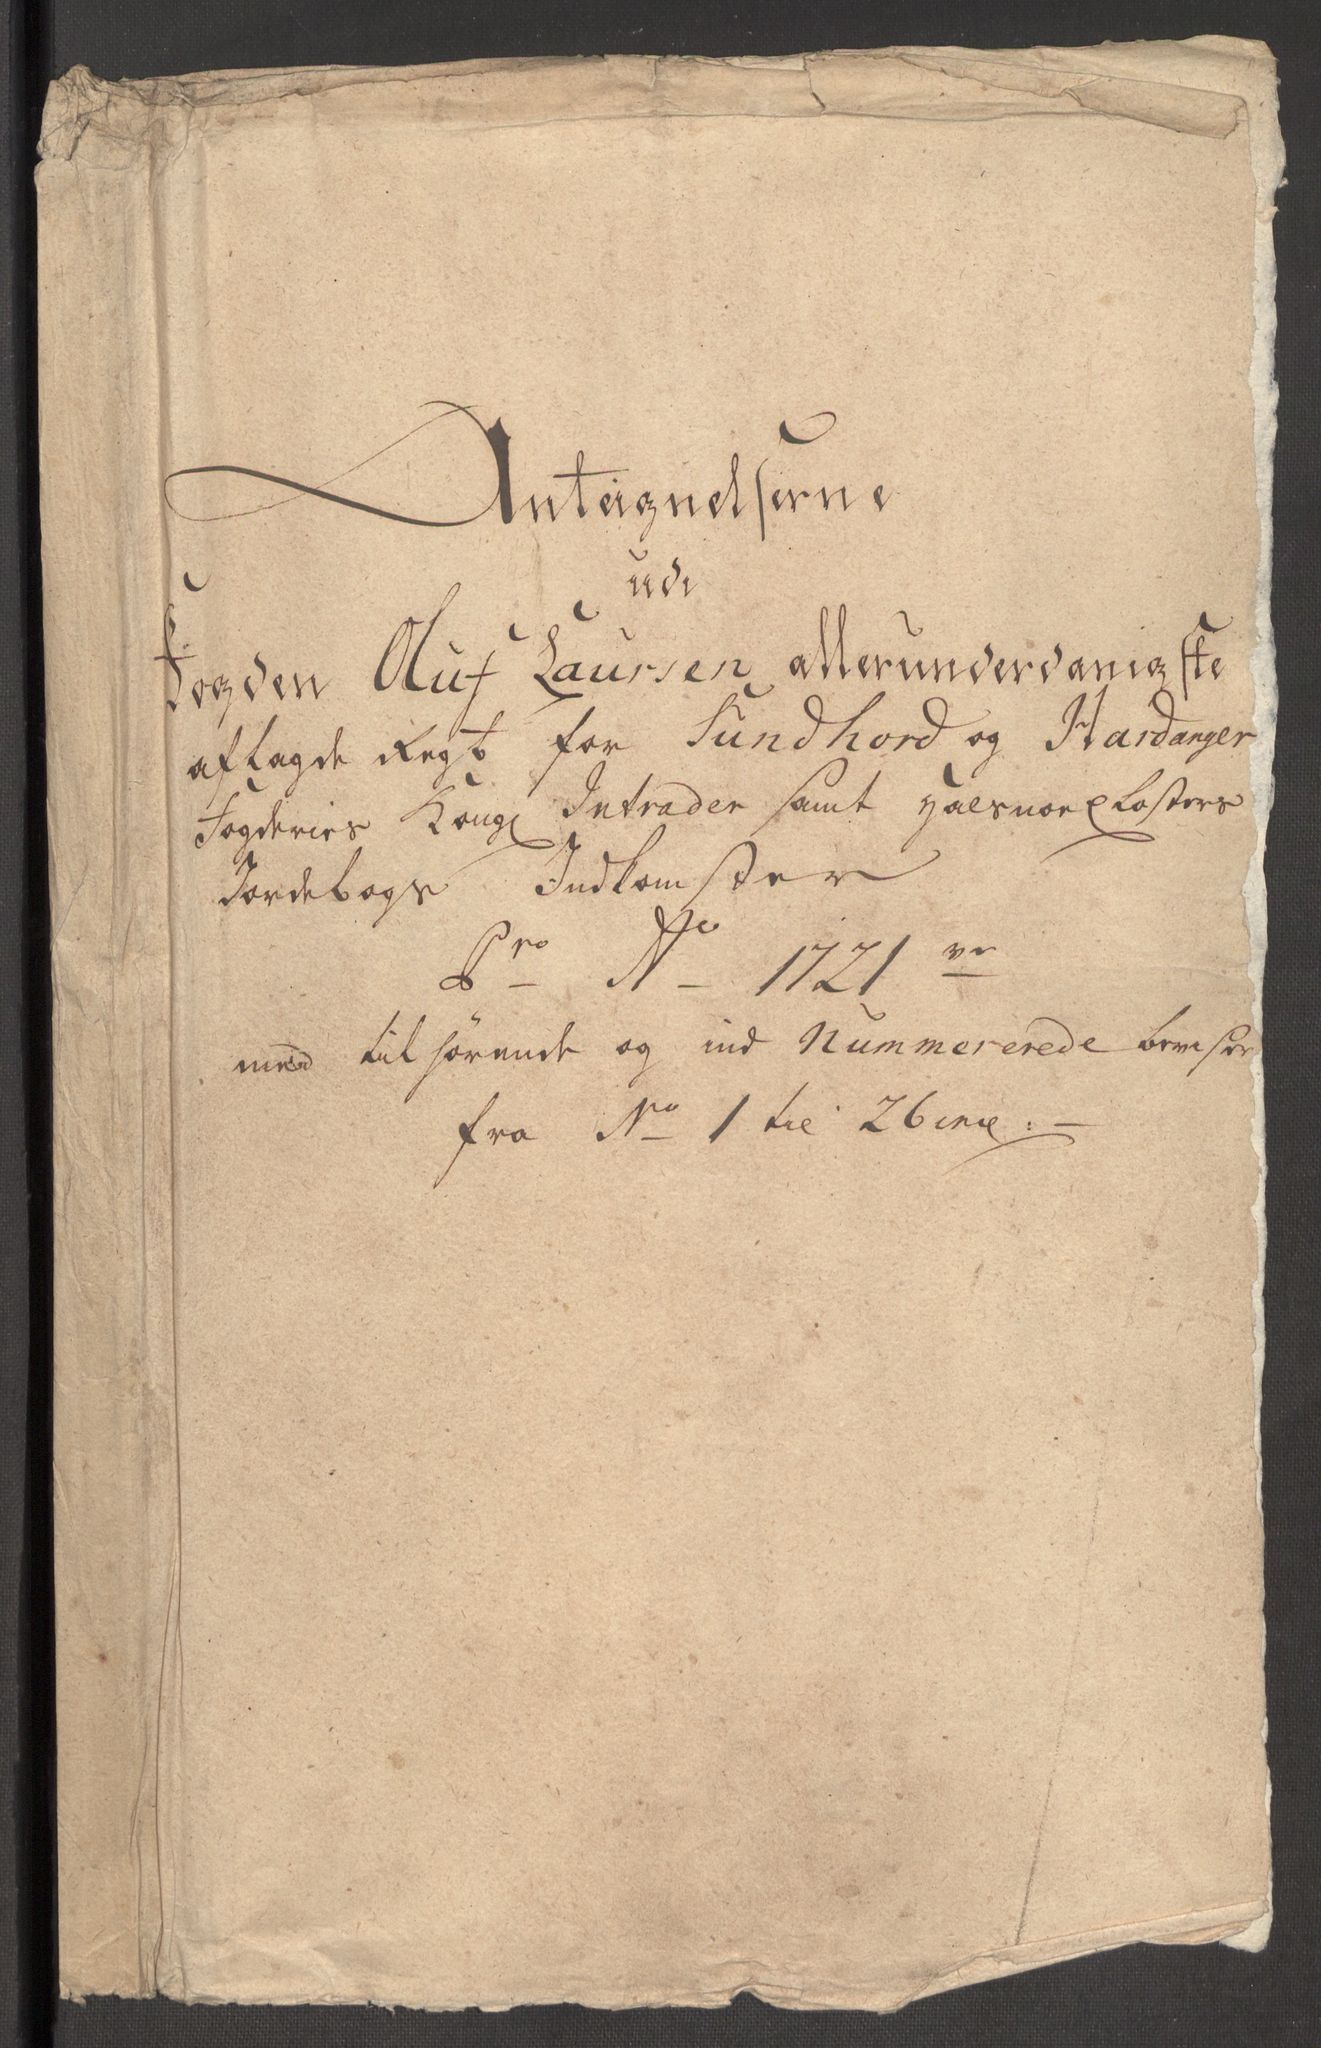 Anteignelserne
udi
Fogden Oluf Laursen allerunderdanigste
aflagde Regt for Sundhord og Hardanger
Fogderies Kongl Intrader samt Halsnoe Closters
Jordebogs Indkomster
Pro Ao 1721
med tilhørende og ind Nummererede beviser
fra No 1 til 26 incl: